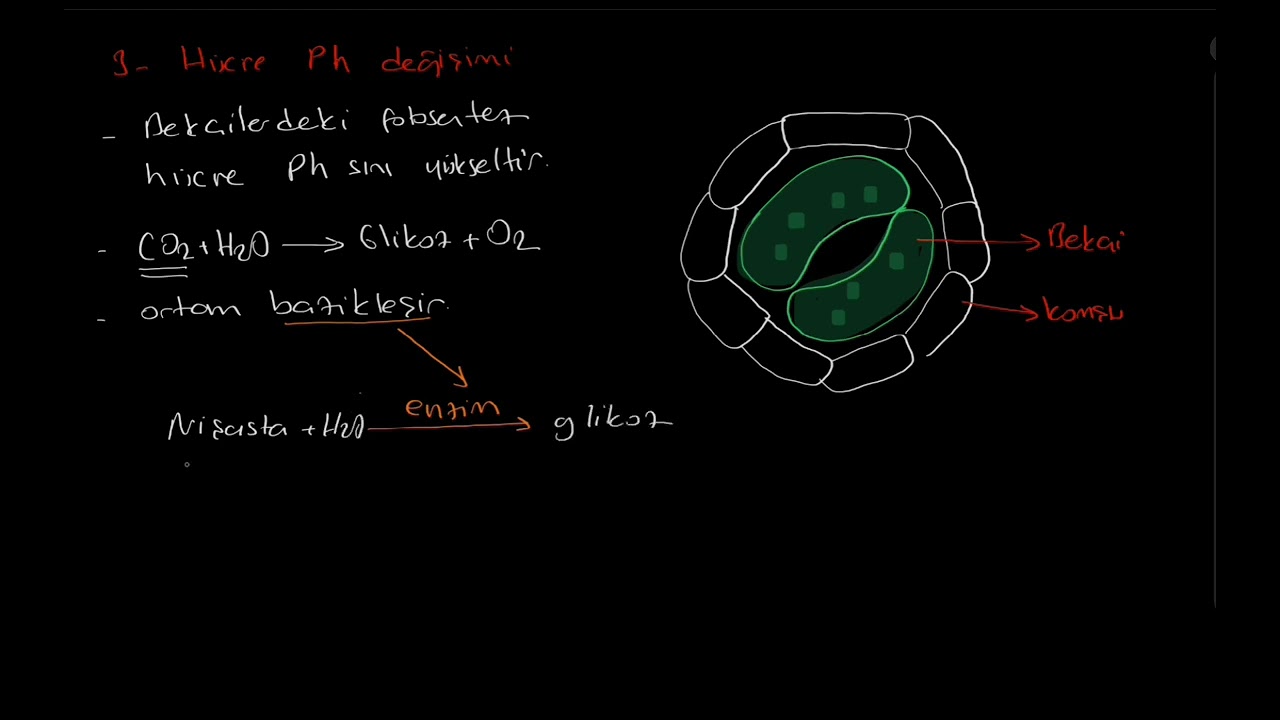 3- Hücre Ph değişimi
- Bekçilerdeki fotosentez
hücre Ph sını yükseltir.
- CO2 + H2O → Glikoz + O2
- ortam bazikleşir.
Nişasta + H2O enzim → glikoz
Bekçi
komşu